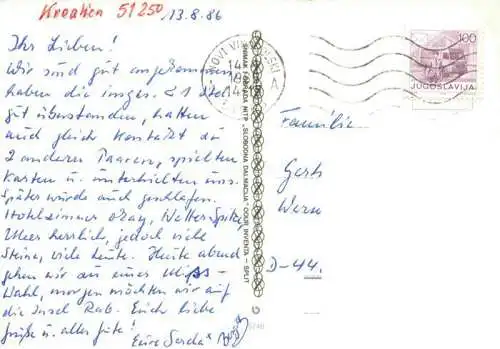 Kroatien 51250
13.8.86
Ihr Lieben!
Wir sind gut angekommen
haben die insges. 21 Std
gut überstanden, hatten
auch gleich Kontakt zu
2 anderen Paaren, spielten
Karten u. unterhielten uns.
Später wurde auch geschlafen.
Hotelzimmer okay, Wetter Spitze,
Meer herrlich, jedoch viele
Steine, viele Leute. Heute abend
gehen wir zu einer Miss-
Wahl, morgen möchten wir auf
die Insel Rab. Euch liebe
Grüße u. alles gute!
Eure
NOVI
14
SNIMAK I IZRADA NITP „SLOBODNA DALMACIJA" OOUR INVENTA — SPLIT
100
JUGOSLAVIJA
Familie
Gerh
D-44.